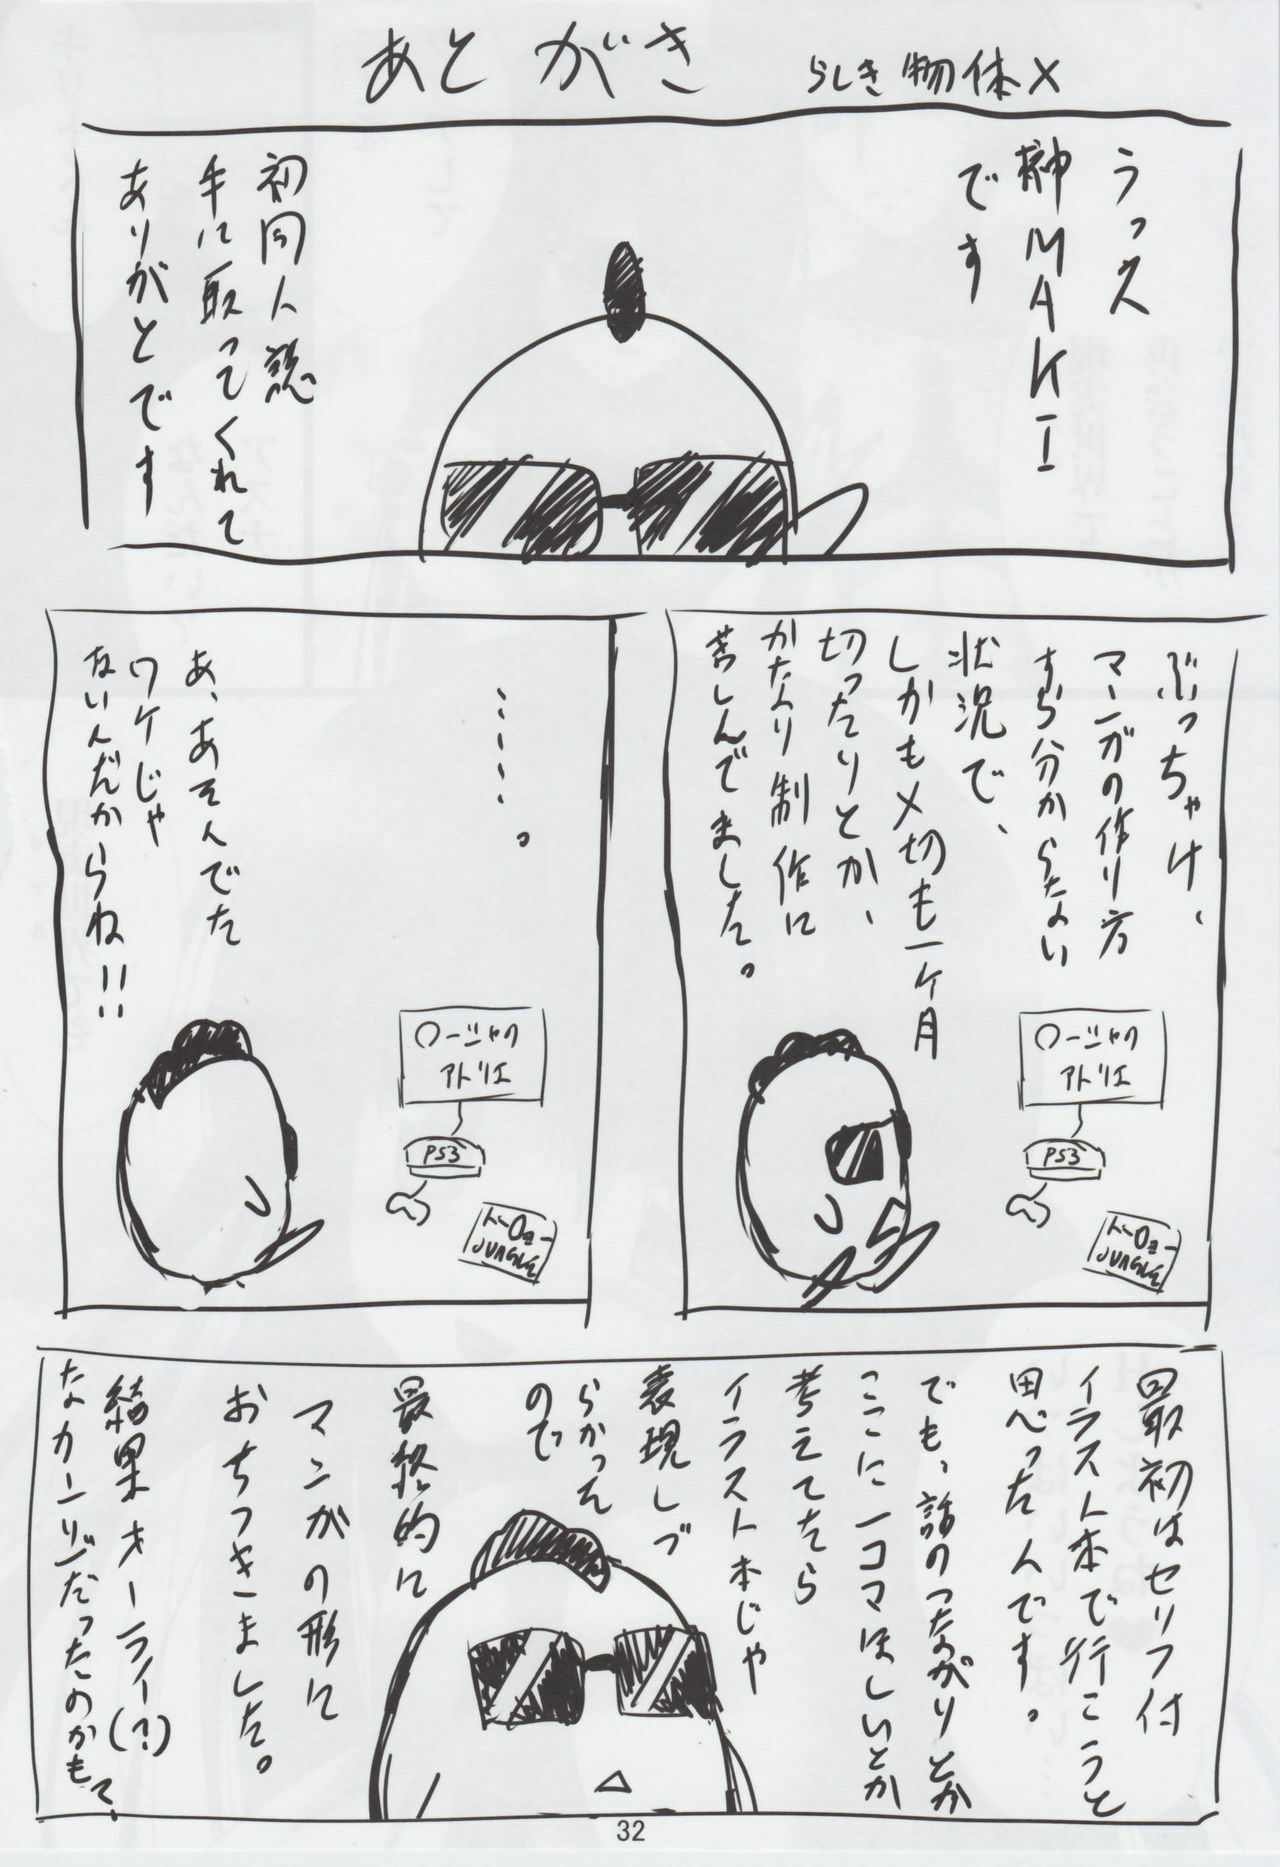 あとがき
らしき物体X
うっス
榊MAKI
です
初同人誌
手に取ってくれて
ありがとです
ぶっちゃけ、
マンガの作り方
すら分からない
状況で、
しかも〆切も一ヶ月
切ったりとか、
かなり制作に
苦しんでました。
ロージャのアトリエ
PS3
JUNGLE
・・・・・。
あ、あそんでた
ワケじゃ
ないんだからね!!
ロージャのアトリエ
PS3
JUNGLE
最初はセリフ付
イラスト本で行こうと
思ったんです。
でも、話のつながりとか
ここに一コマほしいとか
考えてたら
イラスト本じゃ
表現しづ
らかった
ので
最終的に
マンガの形に
おちつきました。
結果オーライ(?)
なカンジだったのかもて、
32